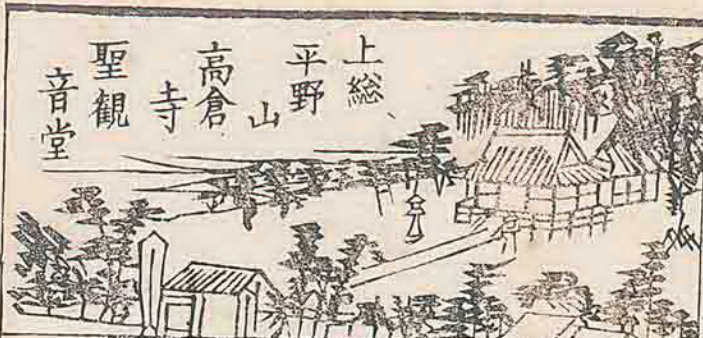 上総
平野
山
高倉
寺
聖観
音堂